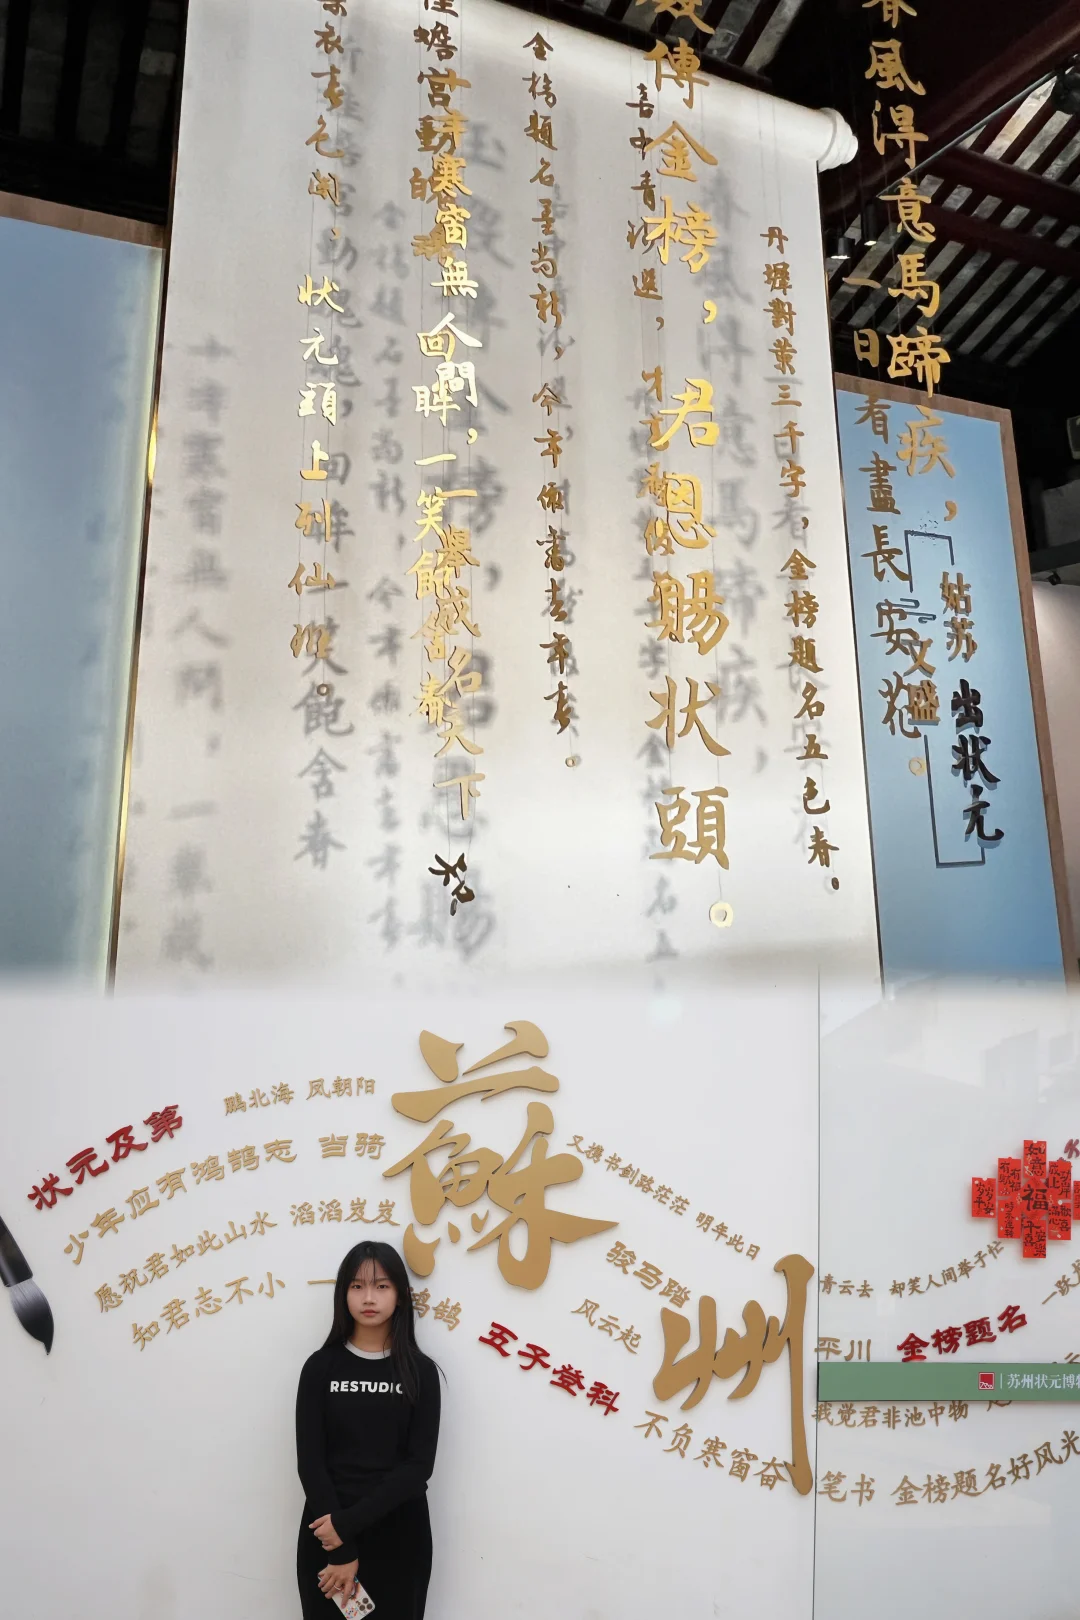 春風得意馬蹄疾，
一日看盡長安花。
丹墀對策三千字，金榜題名五色春。
傳金榜，君恩賜状頭。
喜中青
選，才
金榜題名墨尚新，今年依舊去年春。
十年寒窗無人問，一舉成名天下知
蟾宫動
回眸一笑飽含春
衣春色
，状元頭上
列仙
姑苏
文盛
出状元
状元及第
鹏北海 凤朝阳
少年应有鸿鹄志 当骑
愿祝君如此山水 滔滔岌岌
知君志不小 一
鸿鹄
蘇州
又携书剑路茫茫 明年此日
骏马踏
风云起
五子登科
不负寒窗奋
青云去 却笑人间举子忙
平川
金榜题名
一跃
苏州状元博物
我觉君非池中物
笔书 金榜题名好风光
福
RESTUDIO